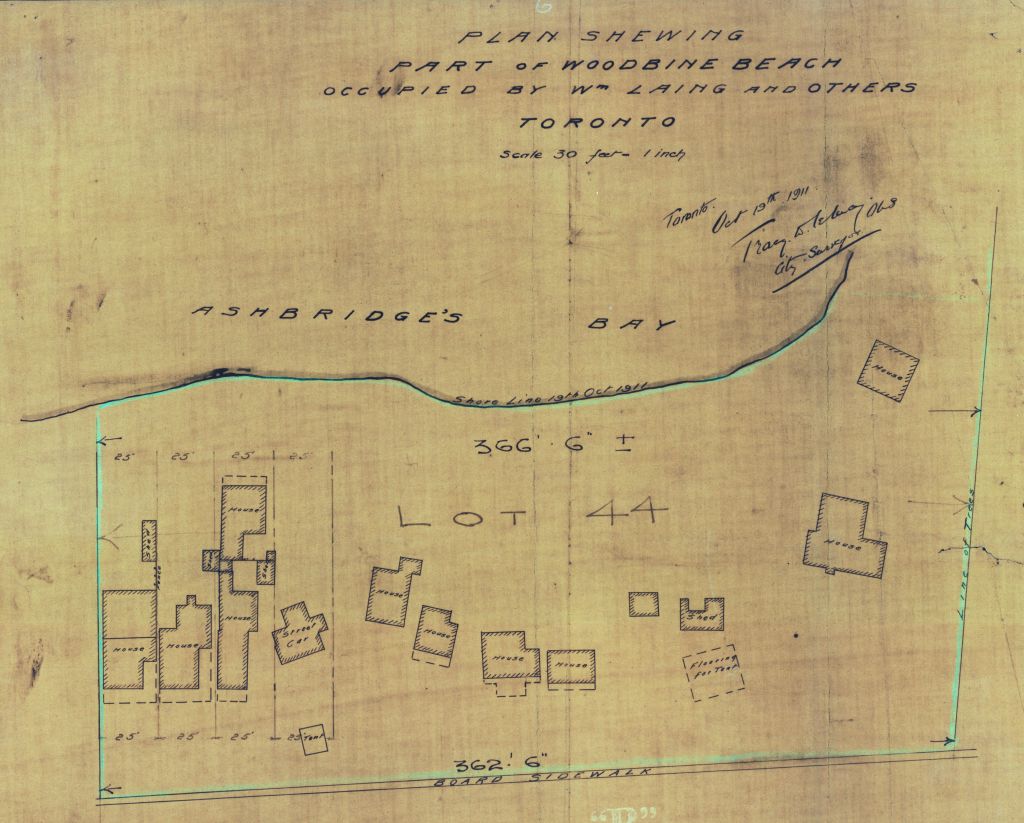 PLAN SHEWING
PART OF WOODBINE BEACH
OCCUPIED BY Wm LAING AND OTHERS
TORONTO
Scale 30 feet = 1 inch
Toronto. Oct 19th 1911.
City Surveyor
ASHBRIDGE'S BAY
Shore Line 19th Oct 1911
366' 6" ±
25' 25' 25' 25'
LOT 44
House
House
Shed
House
House
House
House
House
Street
Car
House
House
House
House
Shed
Flooring
For Tent
Line of Trees
25' 25' 25' 25'
Tent
362' 6"
BOARD SIDEWALK